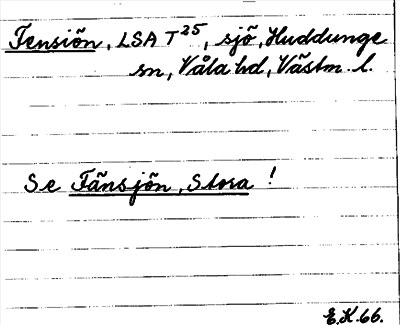 Tensiön, LSA T25, sjö, Huddunge
sn, Våla hd, Västm. l.
Se Tänsjön, Stora !
E.K.66.